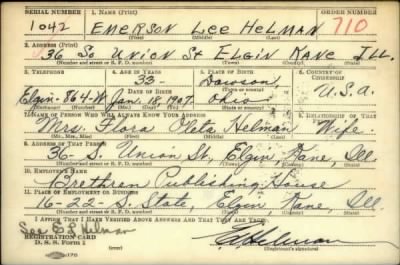 SERIAL NUMBER 1. NAME (Print) ORDER NUMBER
1042 EMERSON LEE HELMAN 710
(First) (Middle) (Last)
2. ADDRESS (Print)
36 So UNION St ELGIN KANE ILL.
(Number and street or R. F. D. number) (Town) (County) (State)
3. TELEPHONE 4. AGE IN YEARS 5. PLACE OF BIRTH 6. COUNTRY OF CITIZENSHIP
33 Dawson
Elgin-864-W DATE OF BIRTH Ohio U.S.A.
Jan. 18, 1907
(Exchange) (Number) (Mo.) (Day) (Yr.) (State or country)
7. NAME OF PERSON WHO WILL ALWAYS KNOW YOUR ADDRESS 8. RELATIONSHIP OF THAT PERSON
Mrs. Flora Oleta Helman Wife
(Mr., Mrs., Miss) (First) (Middle) (Last)
9. ADDRESS OF THAT PERSON
36 S. Union St, Elgin, Kane, Ill.
(Number and street or R. F. D. number) (Town) (County) (State)
10. EMPLOYER'S NAME
Brethren Publishing House
11. PLACE OF EMPLOYMENT OR BUSINESS
16-22-S. State, Elgin, Kane, Ill.
(Number and street or R. F. D. number) (Town) (County) (State)
I AFFIRM THAT I HAVE VERIFIED ABOVE ANSWERS AND THAT THEY ARE TRUE.
See E L Helman
REGISTRATION CARD
D. S. S. Form 1
E L Helman